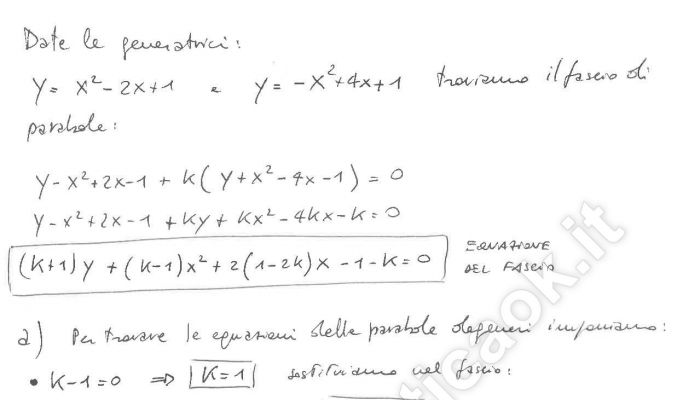 Date le generatrici:
y = x²-2x+1 e y = -x²+4x+1 troviamo il fascio di
parabole:
y-x²+2x-1 + k(y+x²-4x-1) = 0
y-x²+2x-1 + ky + kx²-4kx-k = 0
(k+1)y + (k-1)x² + 2(1-2k)x -1-k = 0 EQUAZIONE
DEL FASCIO
a) Per trovare le equazioni delle parabole degeneri imponiamo:
• k-1=0 ⇒ k=1 sostituiamo nel fascio:
ticaok.it